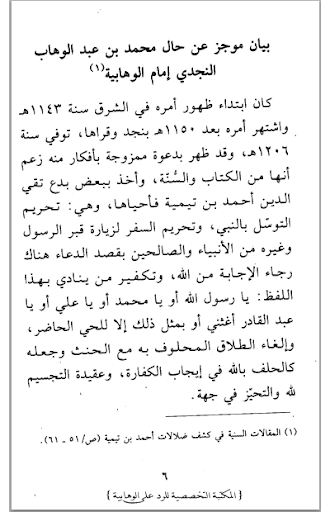 بيان موجز عن حال محمد بن عبد الوهاب
النجدي إمام الوهابية(١)
كان ابتداء ظهور أمره في الشرق سنة ١١٤٣هـ
واشتهر أمره بعد ١١٥٠هـ بنجد وقراها، توفي سنة
١٢٠٦هـ، وقد ظهر بدعوة ممزوجة بأفكار منه زعم
أنها من الكتاب والسُّنّة، وأخذ ببعض بدع تقي
الدين أحمد بن تيمية فأحياها، وهي: تحريم
التوسّل بالنبي، وتحريم السفر لزيارة قبر الرسول
وغيره من الأنبياء والصالحين بقصد الدعاء هناك
رجاء الإجابة من الله، وتكفير من ينادي بهذا
اللفظ: يا رسول الله أو يا محمد أو يا علي أو يا
عبد القادر أغثني أو بمثل ذلك إلا للحي الحاضر،
وإلغاء الطلاق المحلوف به مع الحنث وجعله
كالحلف بالله في إيجاب الكفارة، وعقيدة التجسيم
لله والتحيّز في جهة.
(١) المقالات السنية في كشف ضلالات أحمد بن تيمية (ص/٥١ ـ ٦١).
٦
{ المكتبة التخصصية للرد على الوهابية }